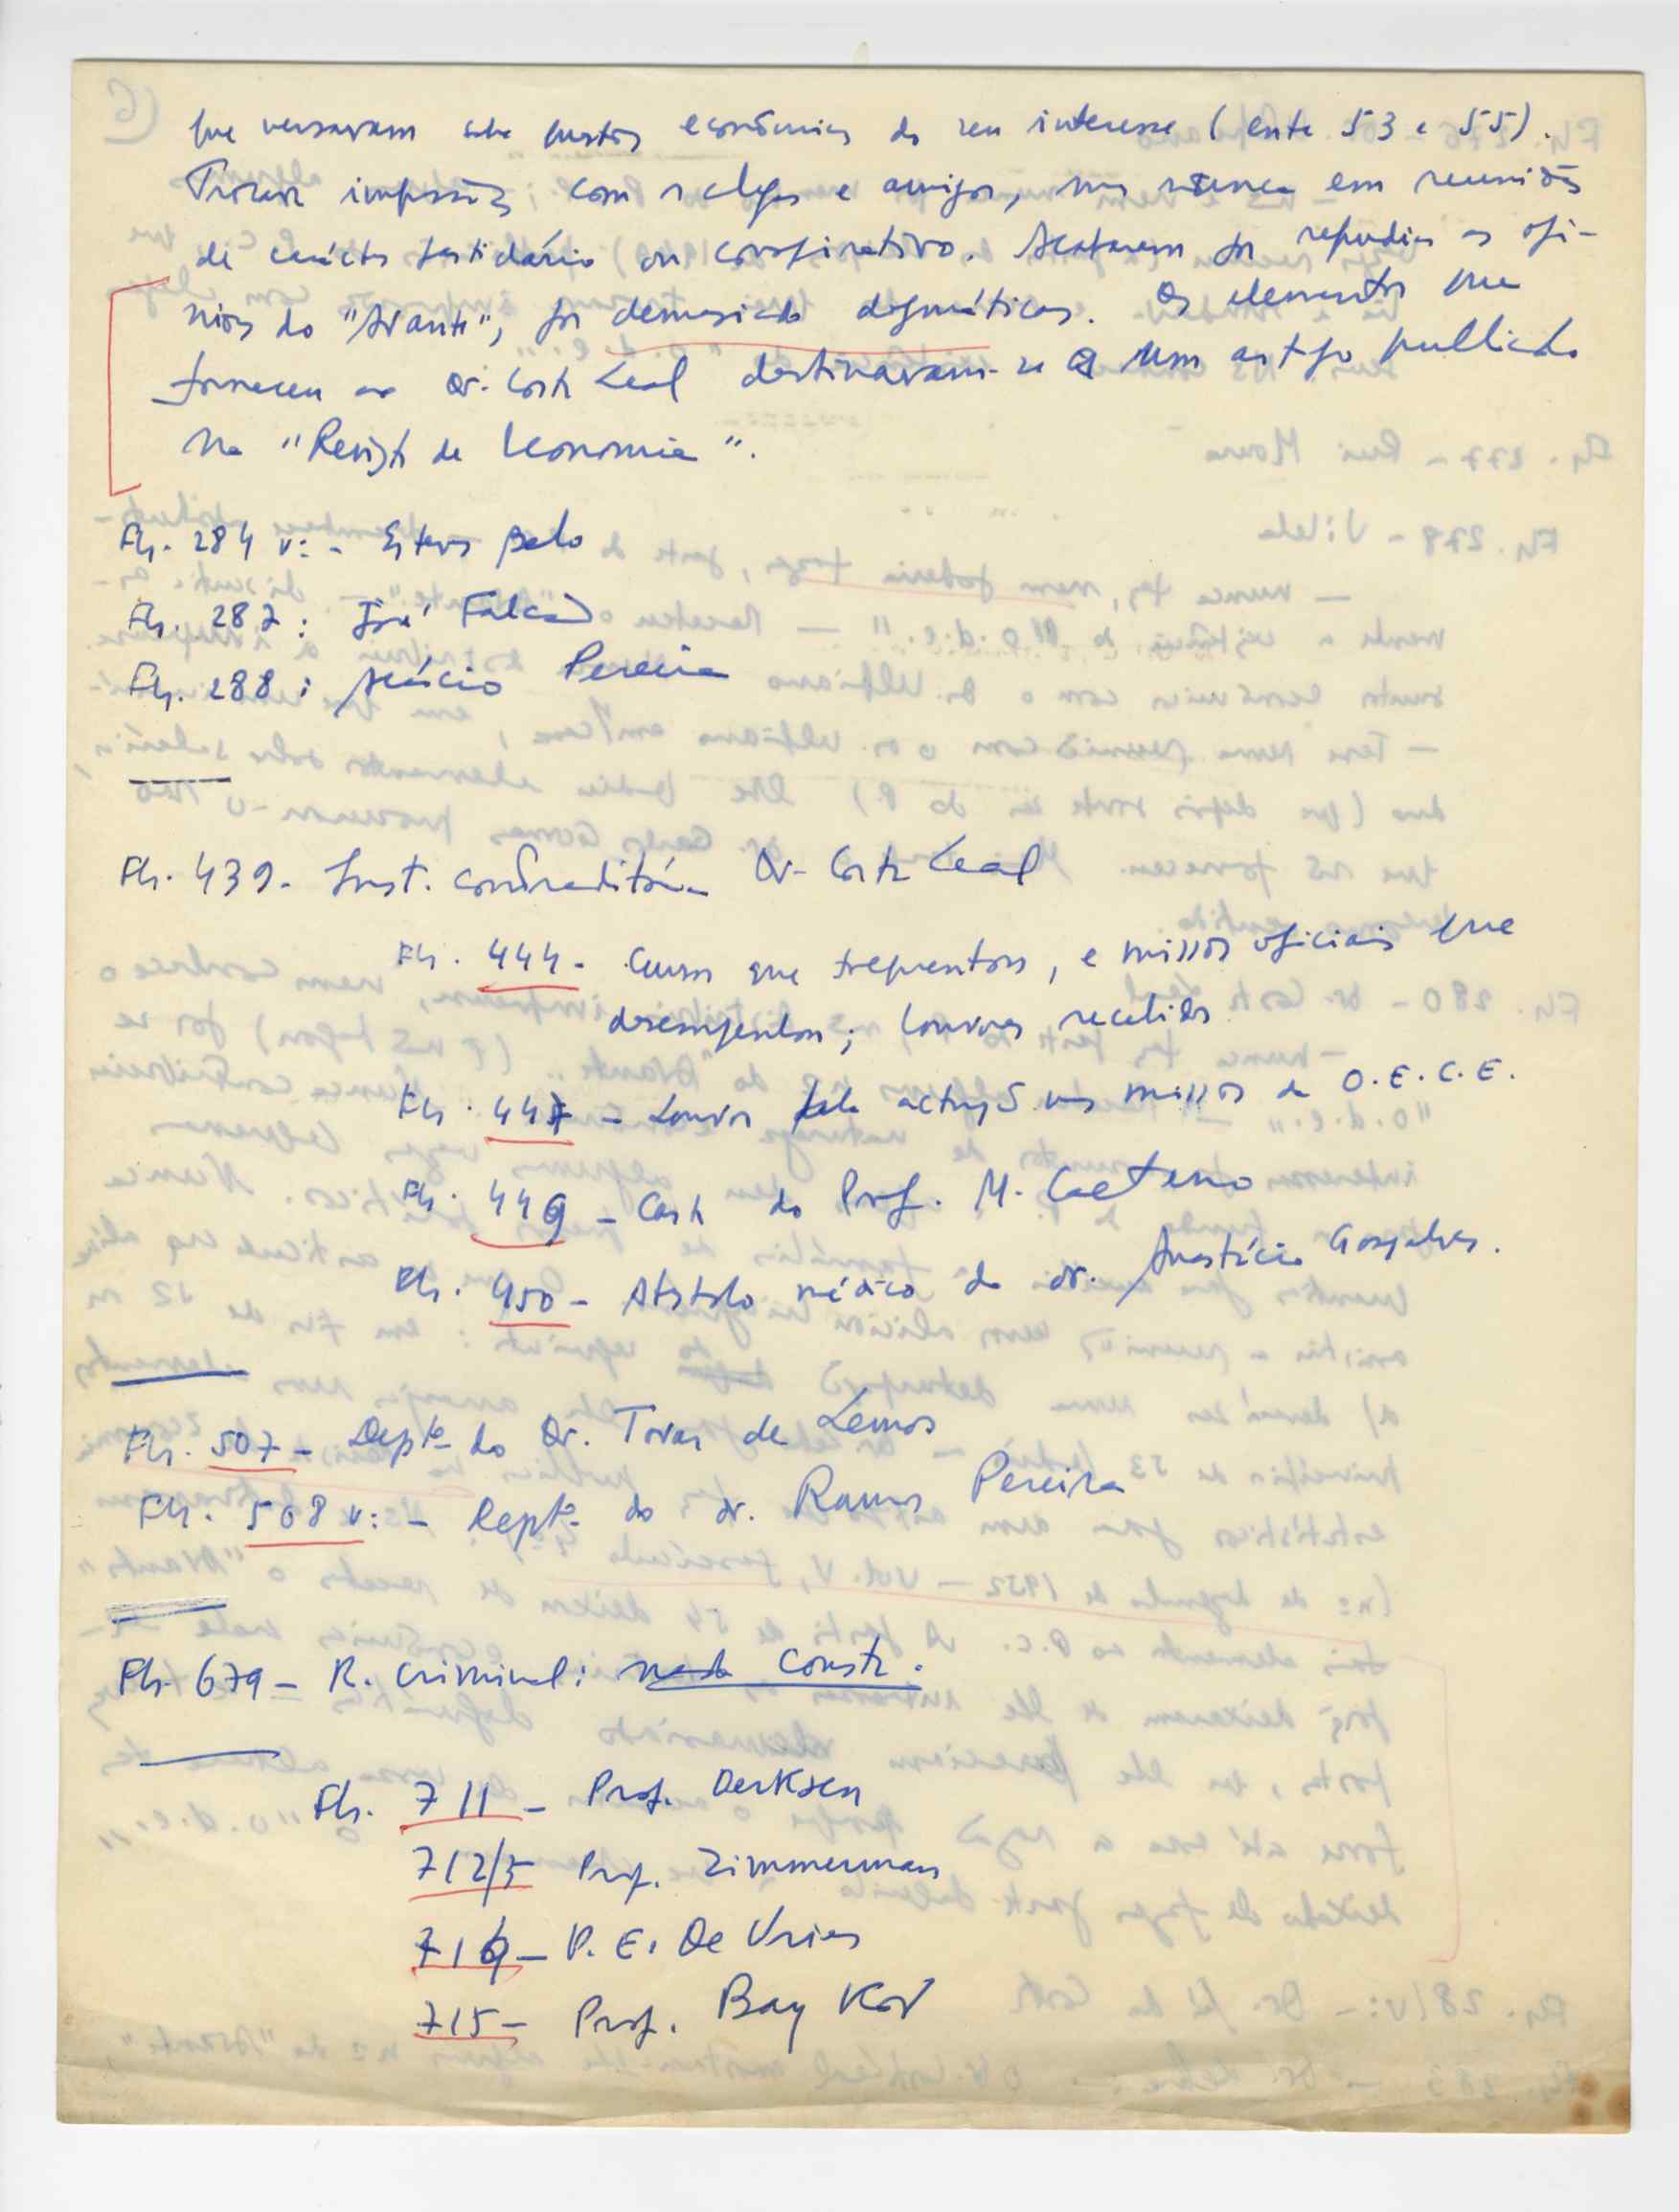 que versavam sobre questões económicas do seu interesse (entre 53 e 55).
Trocar impressões com colegas e amigos, mas nunca em reuniões
de carácter partidário ou conspirativo. Acabaram por repudiar as opi-
niões do "Avante", por demasiado dogmáticas. Os elementos que
forneceu ao Dr. Costa Leal destinavam-se a um artigo publicado
na "Revista de Economia".
Fls. 284 v: - Esteves Belo
Fls. 287: José Falcão
Fls. 288: Acácio Pereira
Fls. 439 - Inst. contraditória Dr. Costa Leal
Fls. 444 - Cursos que frequentou, e missões oficiais que
desempenhou; louvores recebidos
Fls. 447 - Louvor pela actuação nas missões da O.E.C.E.
Fls. 449 - Carta do Prof. M. Caetano
Fls. 450 - Atestado médico do dr. Anastácio Gonçalves.
Fls. 507 - Depto do Dr. Tovar de Lemos
Fls. 508 v: - Depto do dr. Ramos Pereira
Fls. 679 - R. Criminal: nada consta.
Fls. 711 - Prof. Derksen
712/5 Prof. Zimmerman
716 - P. E. De Vries
715 - Prof. Bay